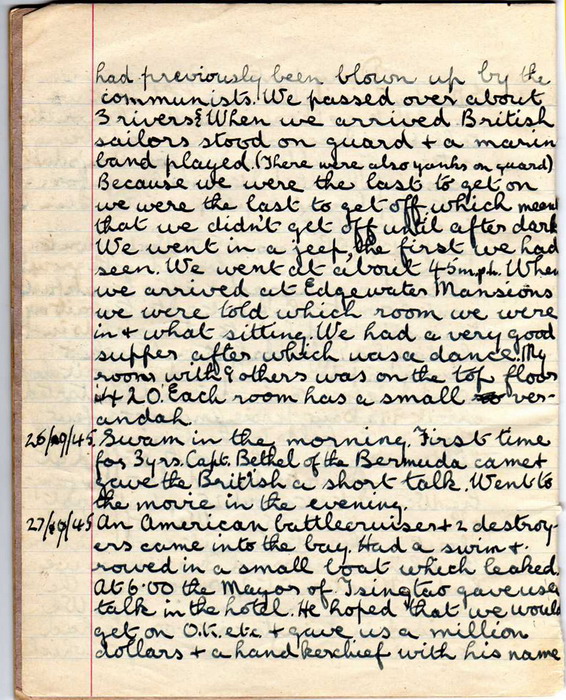 had previously been blown up by the
communists. We passed over about
3 rivers. When we arrived British
sailors stood on guard + a marin
band played. (There were also yanks on guard)
Because we were the last to get on
we were the last to get off which mean
that we didn't get off until after dark
We went in a jeep, the first we had
seen. We went at about 45 mph. When
we arrived at Edgewater Mansions
we were told which room we were
in + what sitting. We had a very good
supper after which was a dance. My
room with 9 others was on the top floor
420. Each room has a small ver-
andah.
26/09/45. Swam in the morning. First time
for 3 yrs. Capt. Bethel of the Bermuda came +
gave the British a short talk. Went to
the movie in the evening.
27/09/45 An American battlecruiser + 2 destroy-
ers came into the bay. Had a swim +
rowed in a small boat which leaked.
At 6.00 the Mayor of Tsingtao gave us a
talk in the hotel. He hoped that we would
get on O.k. etc. + gave us a million
dollars + a handkerchief with his name